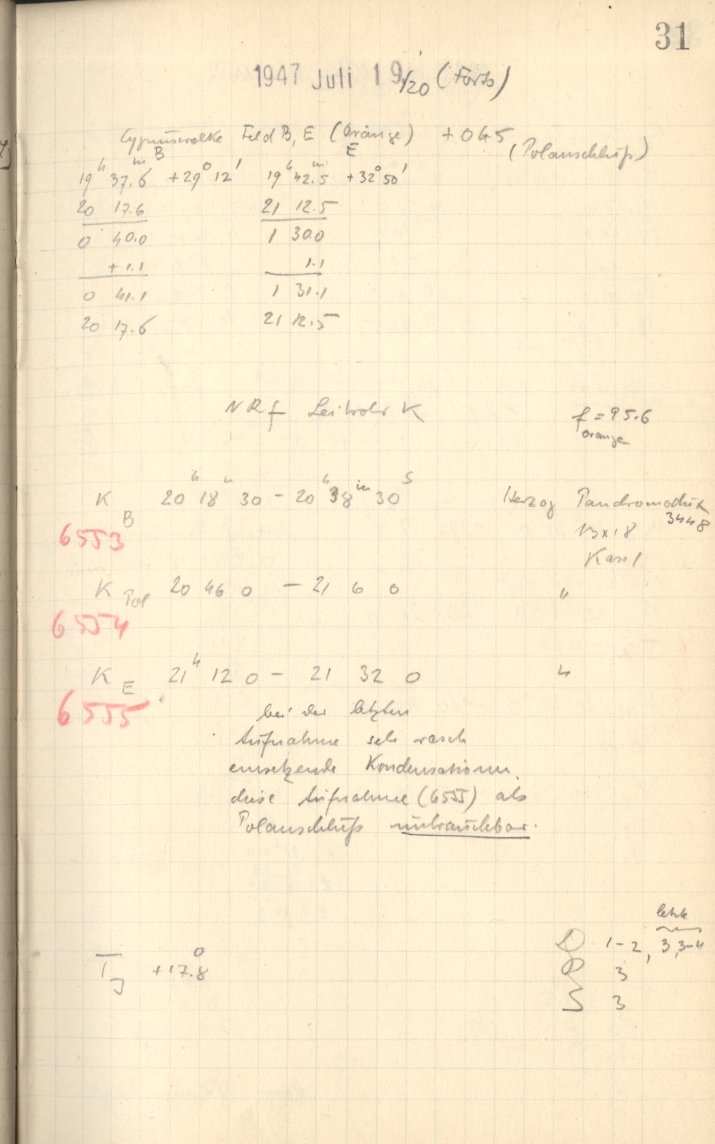 31
1947 Juli 19/20 (Forts)
Cygnuswolke Feld B, E (Orange) +045 (Polanschluß)
B E
19h 37.6m +29° 12' 19h 42.5m +32° 50'
20 17.6 21 12.5
0 40.0 1 30.0
+1.1 1.1
0 41.1 1 31.1
20 17.6 21 12.5
NRf Leitrohr K f = 95.6
Orange
K B 20h 18m 30 - 20h 38m 30s Herzog Pandromodux
6553 13x18 3448
K Pol 20 46 0 - 21 6 0 "
6554
K E 21h 12 0 - 21 32 0 "
6555
bei der letzten
Aufnahme sehr rasch
einsetzende Kondensationen,
diese Aufnahme (6555) als
Polanschluß unbrauchbar.
letzte
T J +17.8° D 1-2, 3, 3-4
R 3
S 3